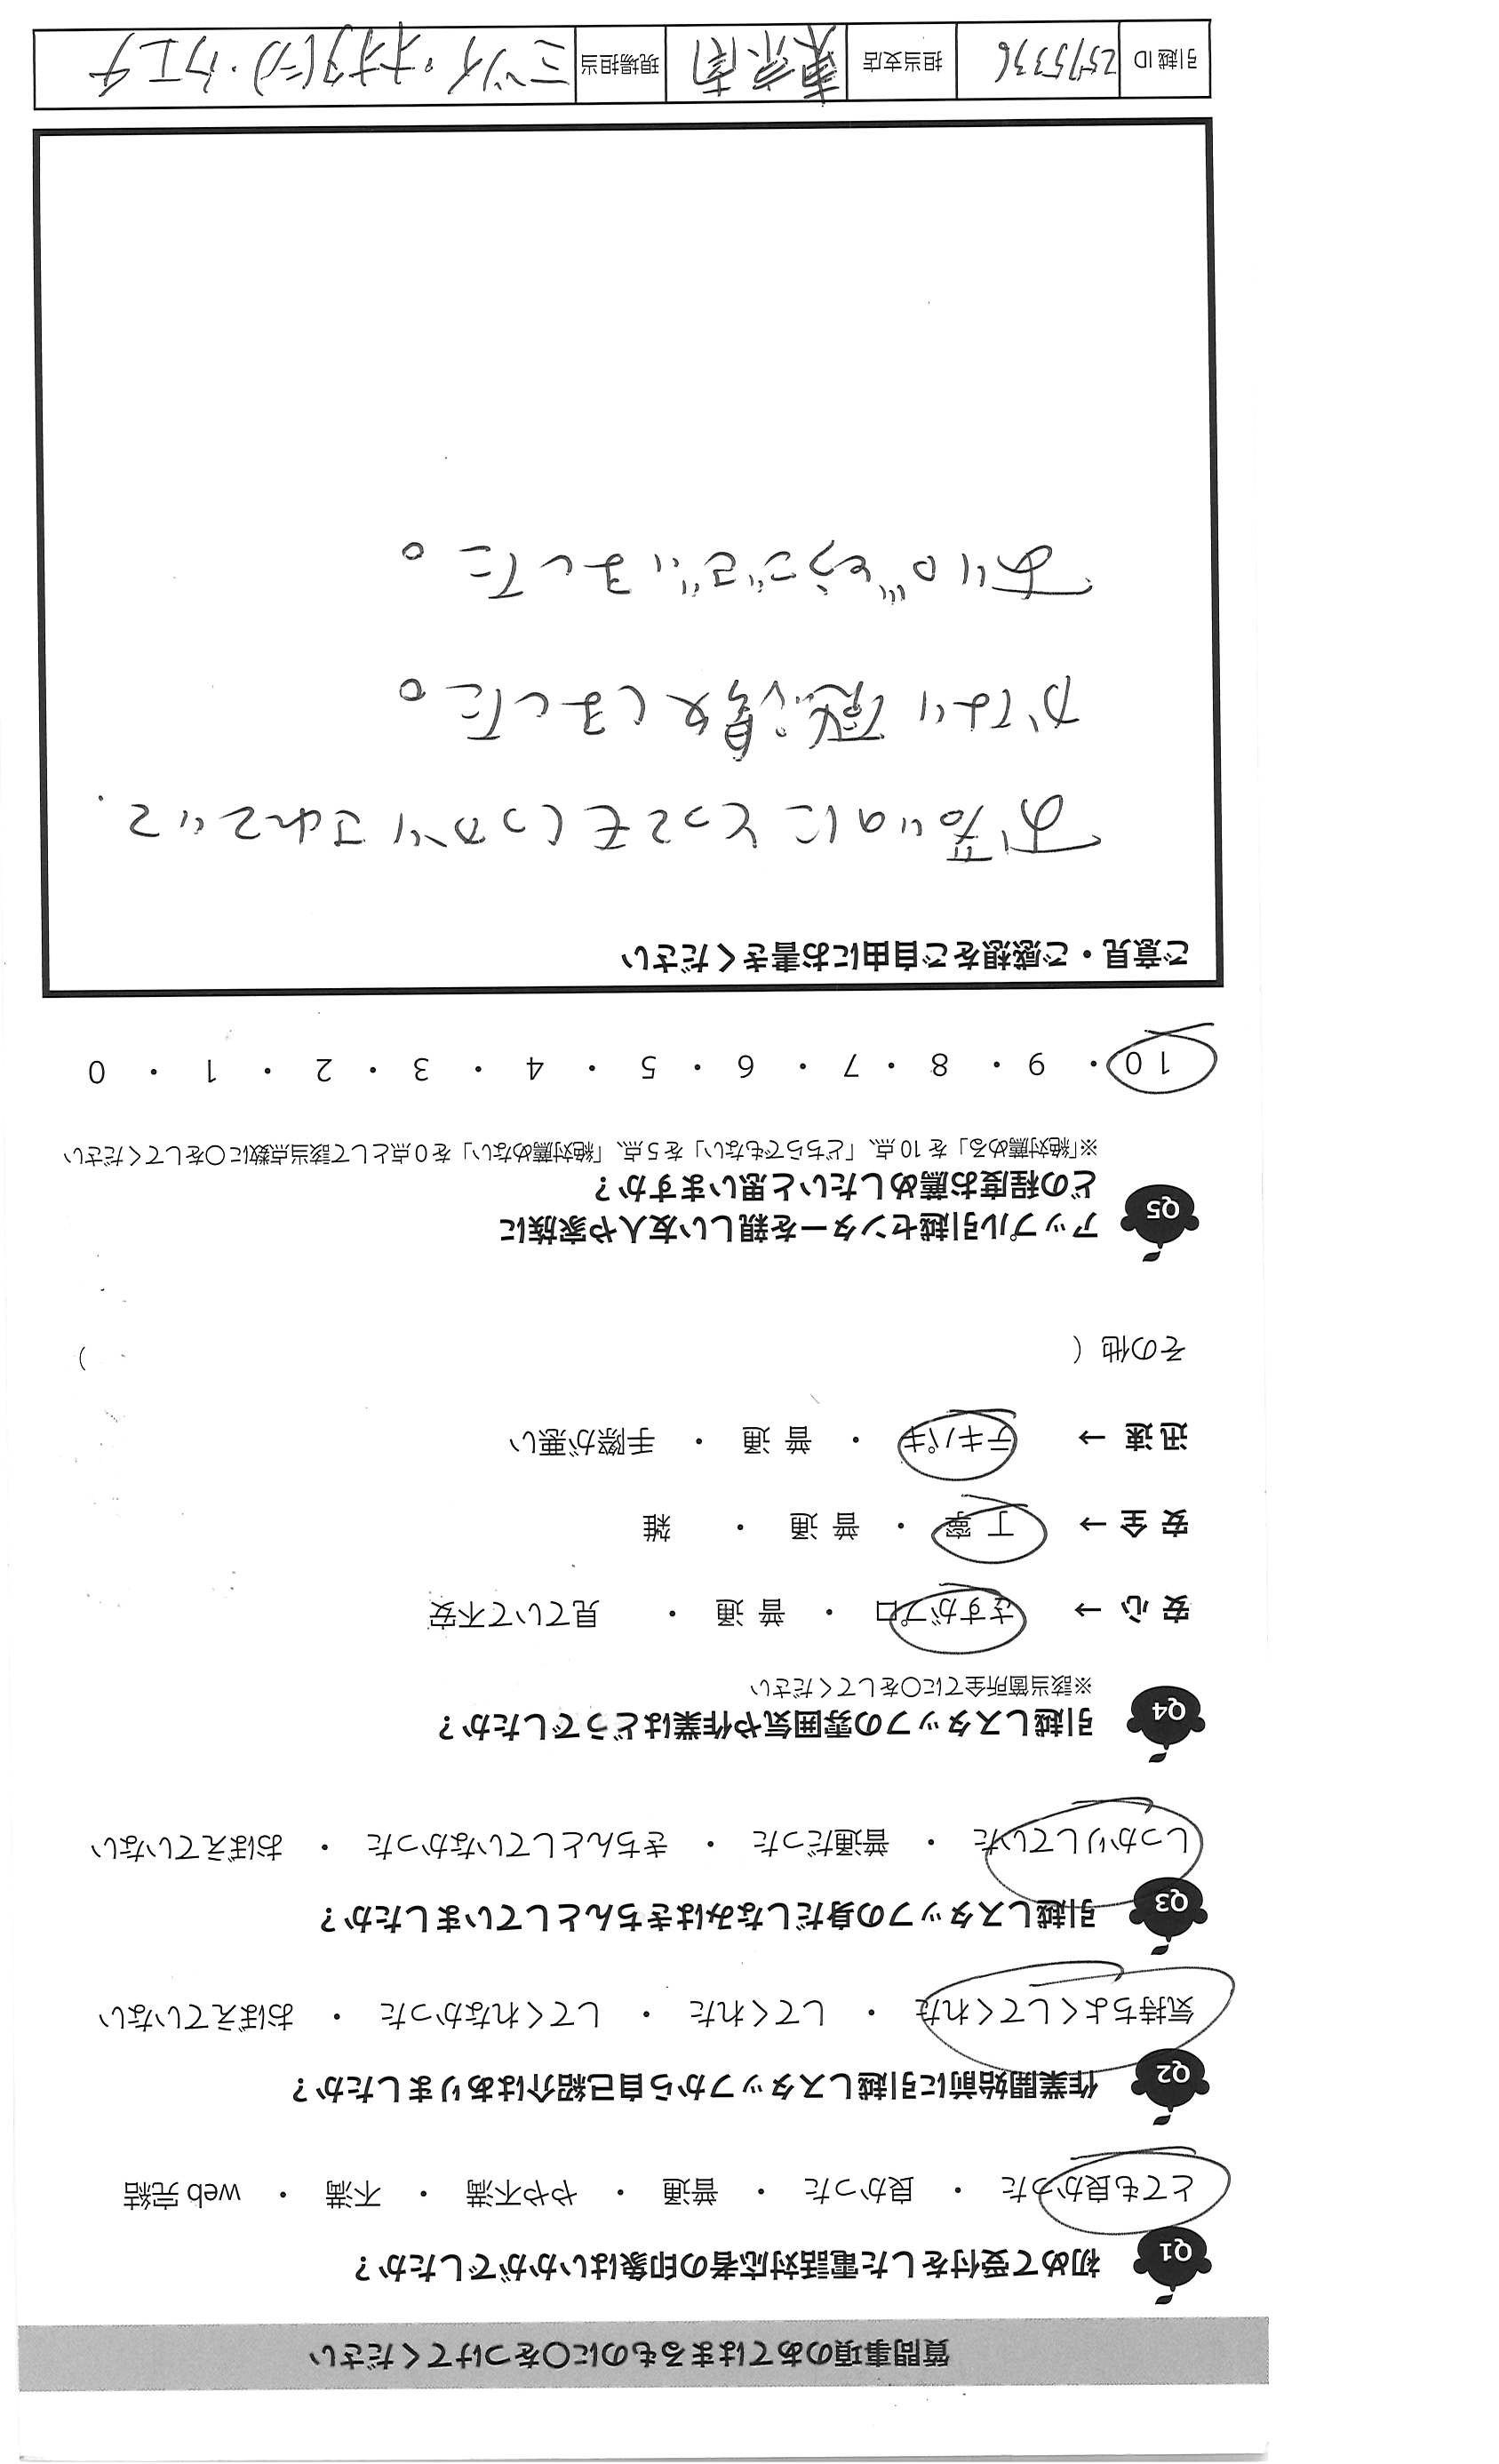 質問事項のあてはまるものに〇をつけてください
Q1 初めて受付をした電話対応者の印象はいかがでしたか？
とても良かった ・ 良かった ・ 普通 ・ やや不満 ・ 不満 ・ web 完結
Q2 作業開始前に引越しスタッフから自己紹介はありましたか？
気持ちよくしてくれた ・ してくれた ・ してくれなかった ・ おぼえていない
Q3 引越しスタッフの身だしなみはきちんとしていましたか？
しっかりしていた ・ 普通だった ・ きちんとしていなかった ・ おぼえていない
Q4 引越しスタッフの雰囲気や作業はどうでしたか？
※該当箇所全てに〇をしてください
安 心 → さすがプロ ・ 普 通 ・ 見ていて不安
安 全 → 丁 寧 ・ 普 通 ・ 雑
迅 速 → テキパキ ・ 普 通 ・ 手際が悪い
その他（ ）
Q5 アップル引越センターを親しい友人や家族に
どの程度お薦めしたいと思いますか？
※「絶対薦める」を 10 点、「どちらでもない」を 5 点、「絶対薦めない」を 0 点として該当点数に〇をしてください
10 ・ 9 ・ 8 ・ 7 ・ 6 ・ 5 ・ 4 ・ 3 ・ 2 ・ 1 ・ 0
ご意見・ご感想をご自由にお書きください
お若いのにとってもしっかりされていて
かなり感心しました。
ありがとうございました。
引越 ID 2575336 担当支店 東京南 現場担当 ミツイ・オオタ(ニ)・ウエチ